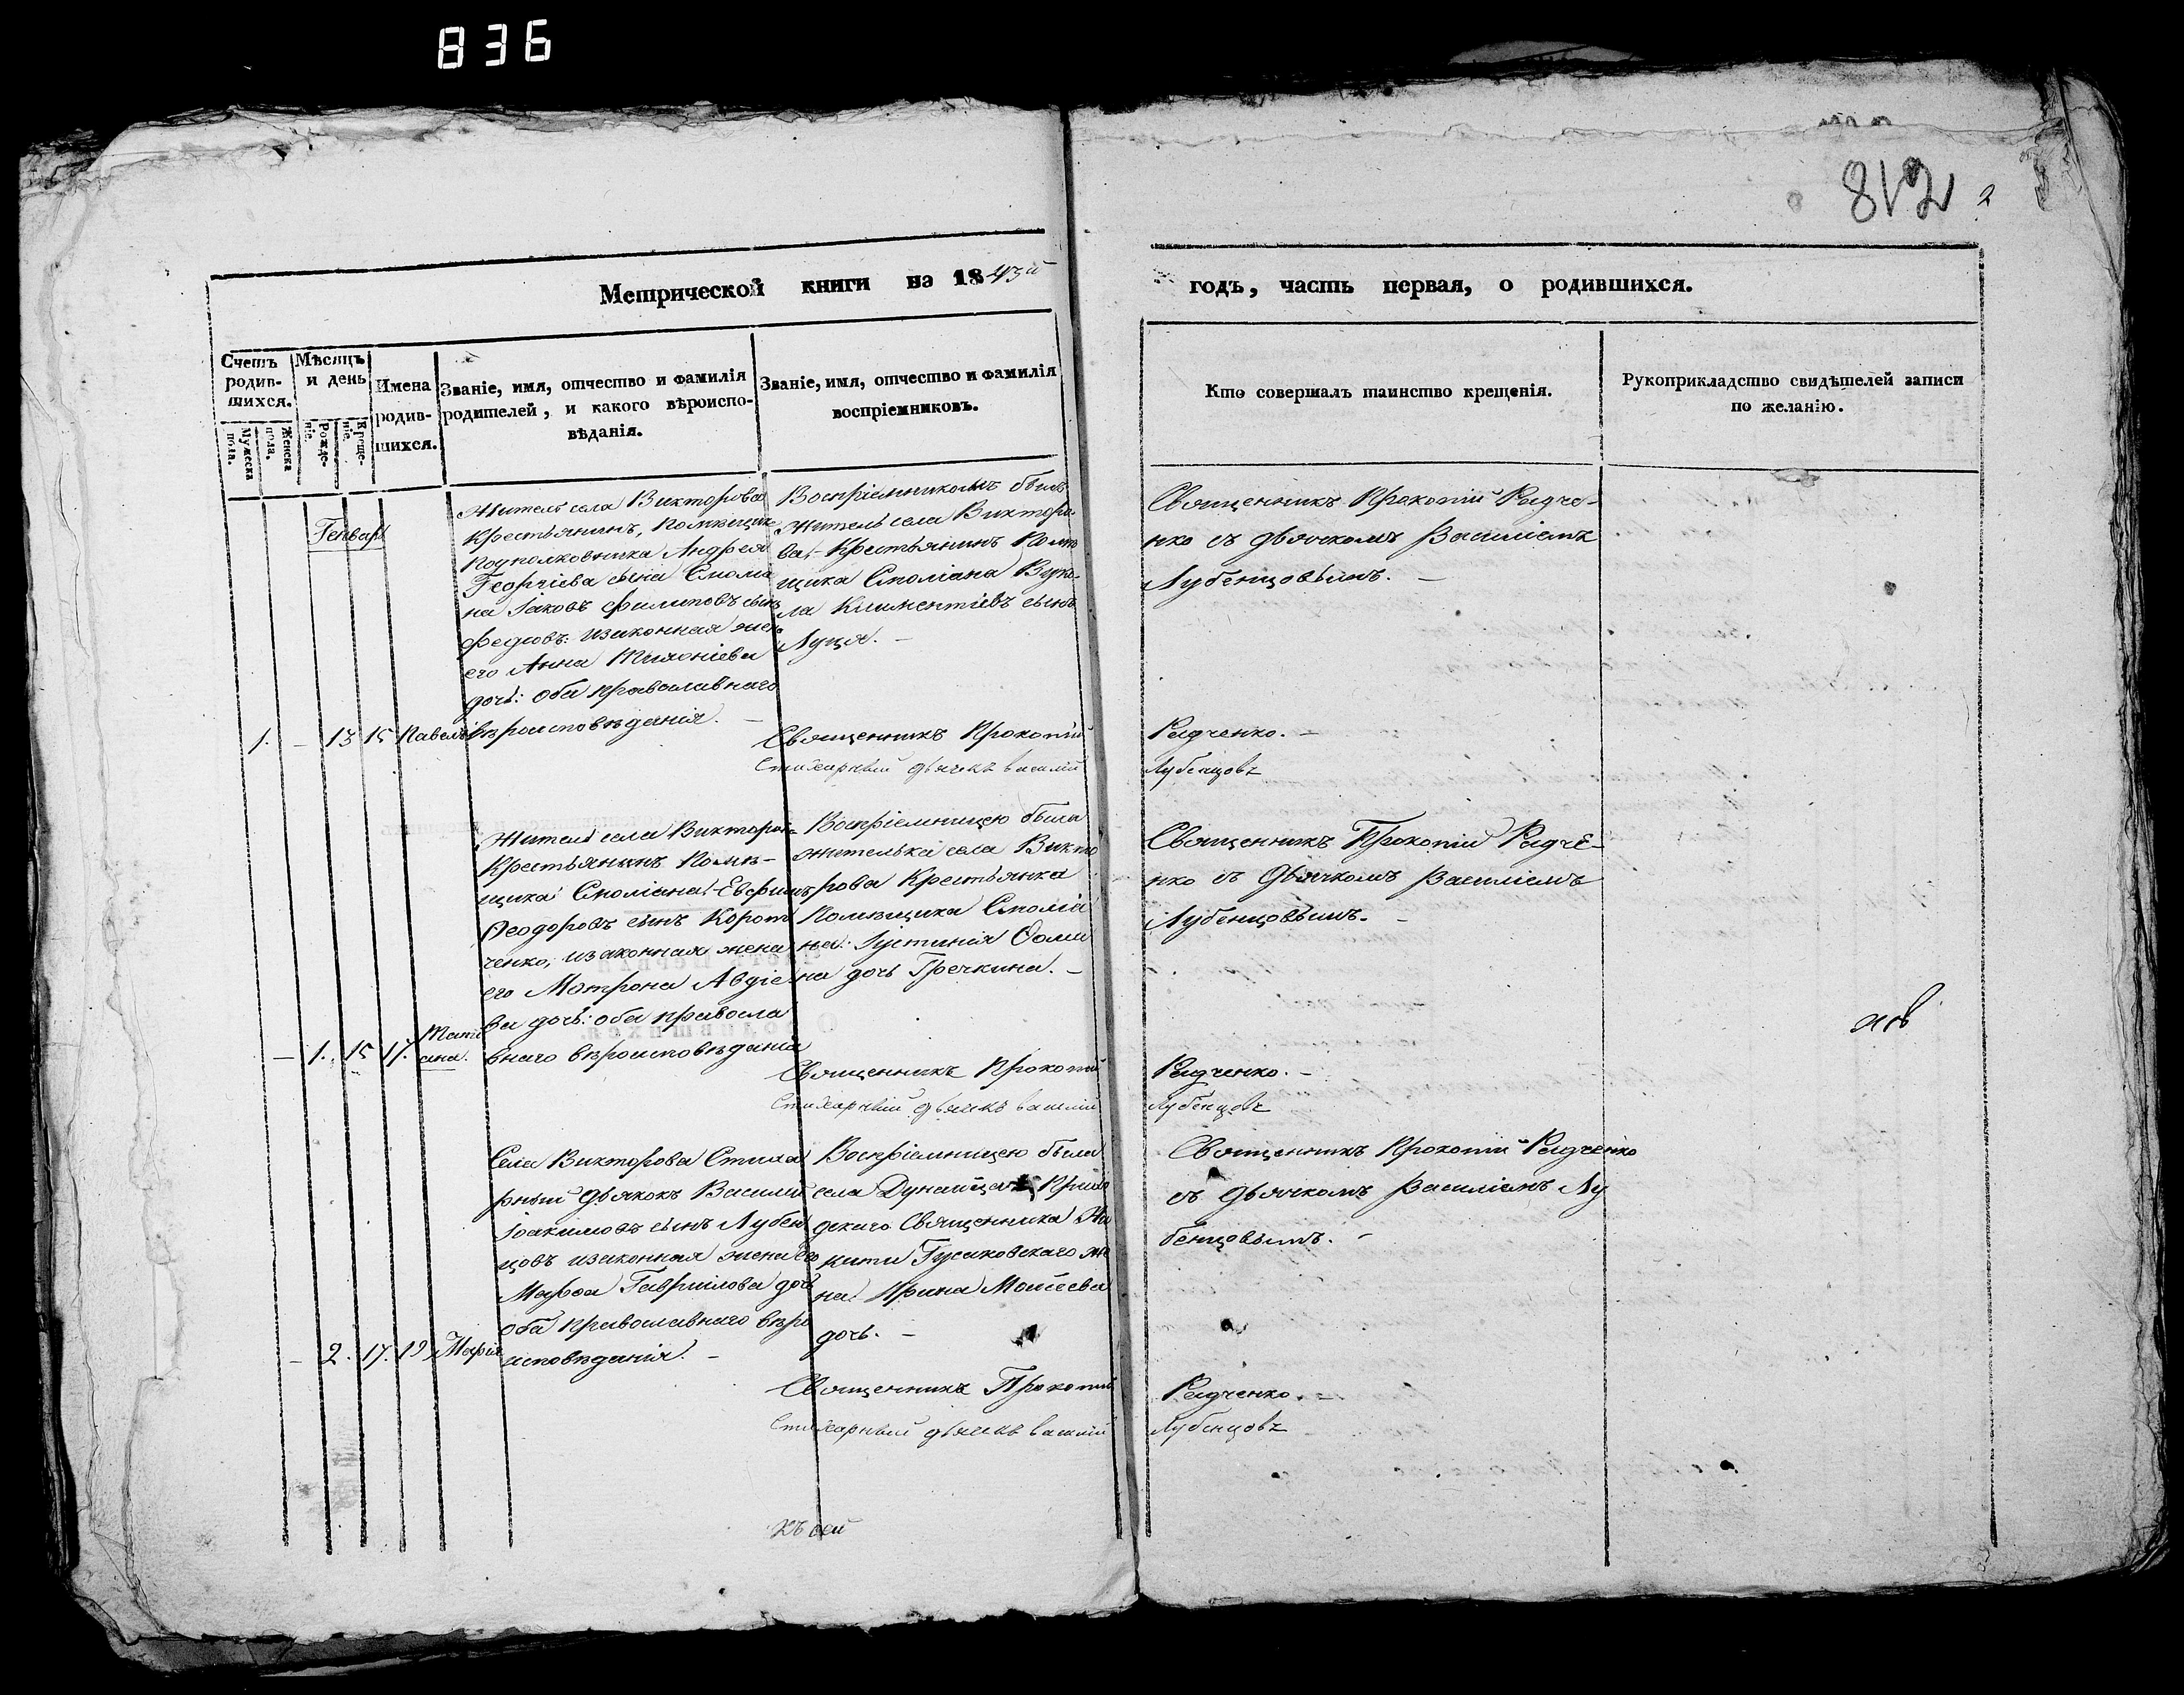 836
812
2
Метрической книги на 1843й
годъ, часть первая, о родившихся.
Счетъ родив-шихся.
Мужеска пола.
Женска пола.
Мѣсяцъ и день
Рожде-нія.
Креще-нія.
Имена родив-шихся.
Званіе, имя, отчество и фамилія
родителей, и какого вѣроиспо-
вѣданія.
Званіе, имя, отчество и фамилія
воспріемниковъ.
Кто совершалъ таинство крещенія.
Рукоприкладство свидѣтелей записи
по желанію.
Генварь
1. - 13 15 Павелъ
Житель села Викторова
Крестьянинъ, Помѣщика
Подполковника Андрея
Георгіева сына Смоля
на Іаковъ Филиповъ сынъ
Федіовъ: изаконная жена
его Анна
дочь: оба православнаго
вѣроисповѣданія. -
Воспріемникомъ былъ
житель села Викторо
ва Крестьянинъ Помѣ
щика Смоліана Вуко-
ла Климентіевъ сынъ
Луця. -
Священникъ Прокопій Радче-
нко съ дьячкомъ Василіемъ
Лубенцовымъ. -
Священникъ Прокопій
Радченко. -
Стихарный дьячекъ Василій
Лубенцовъ
- 1. 15 17. Тать
яна.
Житель села Викторов
Крестьянинъ Помѣ-
щика Смоліана Евфимъ
Ѳеодоровъ сынъ Корот
ченко, изаконная жена
его Матрона Авдіе
ва дочь: оба правосла
внаго вѣроисповѣданія
Воспріемницею была
жителька села Викто
рова Крестьянка
Помѣщика Смоліа
на: Іустинія Ѳоми
на дочь Гречкина. -
Священникъ Прокопій Радче-
нко съ Дьячкомъ Василіемъ
Лубенцовымъ. -
Священникъ Прокопій
Радченко. -
Стихарный дьячекъ Василій
Лубенцовъ
- 2. 17. 19 Марія
Села Викторова Стиха
рный дьячокъ Василій
Іоакимовъ сынъ Лубен
цовъ изаконная жена его
Марѳа Гаврилова дочь
оба православнаго вѣро
исповѣданія. -
Воспріемницею была
села Дунайца Прихо
дскаго Священника Ни
киты Гусаковскаго же
на Ирина Моисеева
дочь. -
Священникъ Прокопій Радченко
съ дьячкомъ Василіемъ Лу
бенцовымъ. -
Священникъ Прокопій
Радченко. -
Стихарный дьячекъ Василій
Лубенцовъ
къ сей